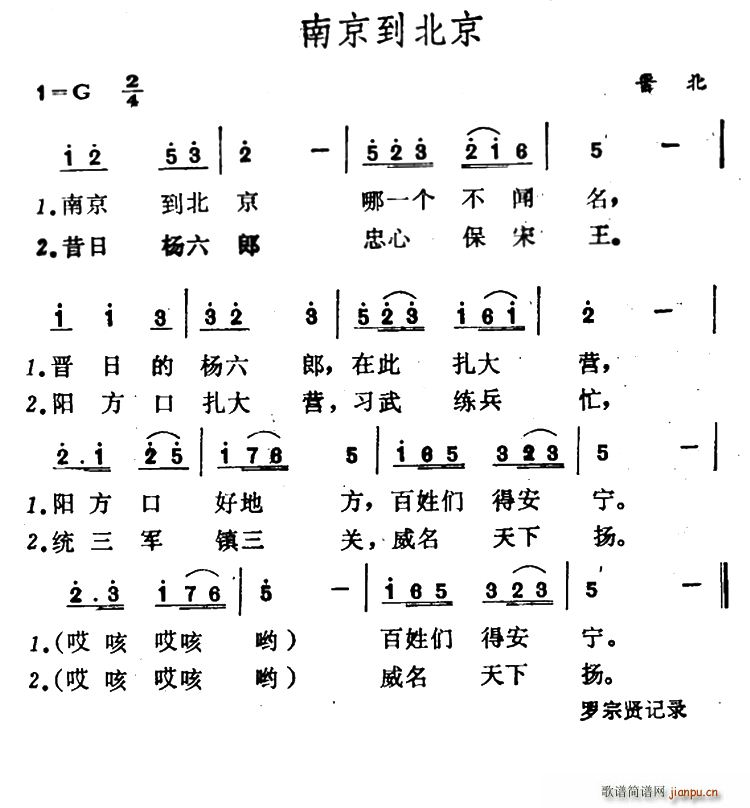 南京到北京
1=G 2/4 晋北
1 2 5 3 | 2 — | 5 2 3 2 1 6 | 5 — |
1.南京 到北 京 哪一个 不 闻 名,
2.昔日 杨六 郎 忠心 保 宋 王。
1 1 3 | 3 2 3 | 5 2 3 1 6 1 | 2 — |
1.晋 日 的 杨六 郎,在此 扎大 营,
2.阳 方 口 扎大 营,习武 练兵 忙,
2. 1 2 5 | 1 7 6 5 | 1 6 5 3 2 3 | 5 — |
1.阳 方 口 好地 方,百姓们 得安 宁。
2.统 三 军 镇三 关,威名 天下 扬。
2. 3 1 7 6 | 5 — | 1 6 5 3 2 3 | 5 — ‖
1.(哎 咳 哎咳 哟) 百姓们 得安 宁。
2.(哎 咳 哎咳 哟) 威名 天下 扬。
罗宗贤记录
歌谱简谱网 jianpu.cn